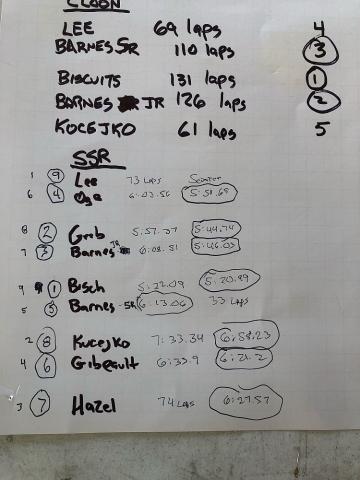 CLOON
LEE 69 laps 4
BARNES SR 110 laps 3
BISCUITS 131 laps 1
BARNES JR 126 laps 2
KOCEJKO 61 laps 5
SSR
1 9 Lee 73 Laps
6 4 6:03.56 5:51.69
8 2 Greb 5:57.37 5:44.74
7 3 Barnes JR 6:08.51 5:46.03
9 1 Bisch 5:22.09 5:20.99
5 5 Barnes SR 6:13.06 33 Laps
2 8 Kucejko 7:33.34 6:58.23
4 6 Gibeault 6:33.9 6:21.2
3 7 Hazel 74 Laps 6:27.57